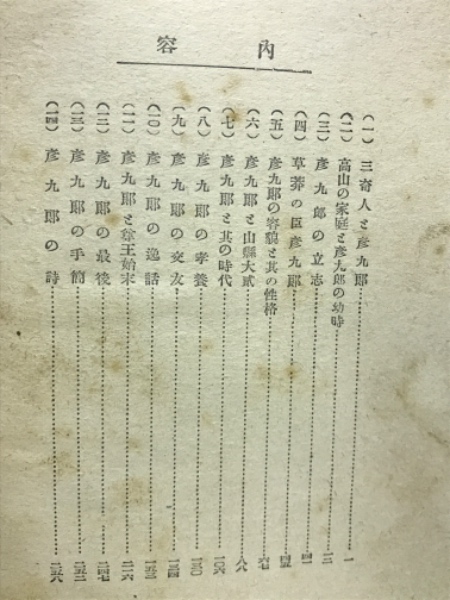 內容
(一) 三奇人と彥九郞……一
(二) 高山の家庭と彥九郞の幼時……一二
(三) 彥九郞の立志……四一
(四) 草莽の臣彥九郞……四五
(五) 彥九郞の容貌と其の性格……六七
(六) 彥九郞と山縣大貳……八八
(七) 彥九郞と其の時代……一〇六
(八) 彥九郞の孝養……一三〇
(九) 彥九郞の交友……一三四
(一〇) 彥九郞の逸話……一五三
(一一) 彥九郞と尊王始末……二一六
(一二) 彥九郞の最後……二四七
(一三) 彥九郞の手簡……二五二
(一四) 彥九郞の詩……二五六